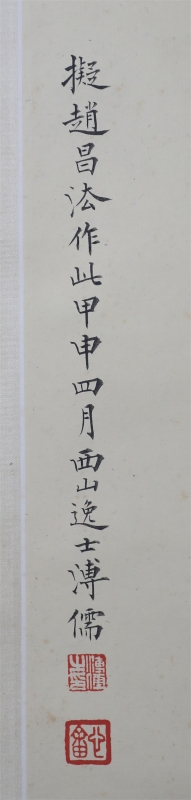 擬趙昌法作此甲申四月西山逸士溥儒